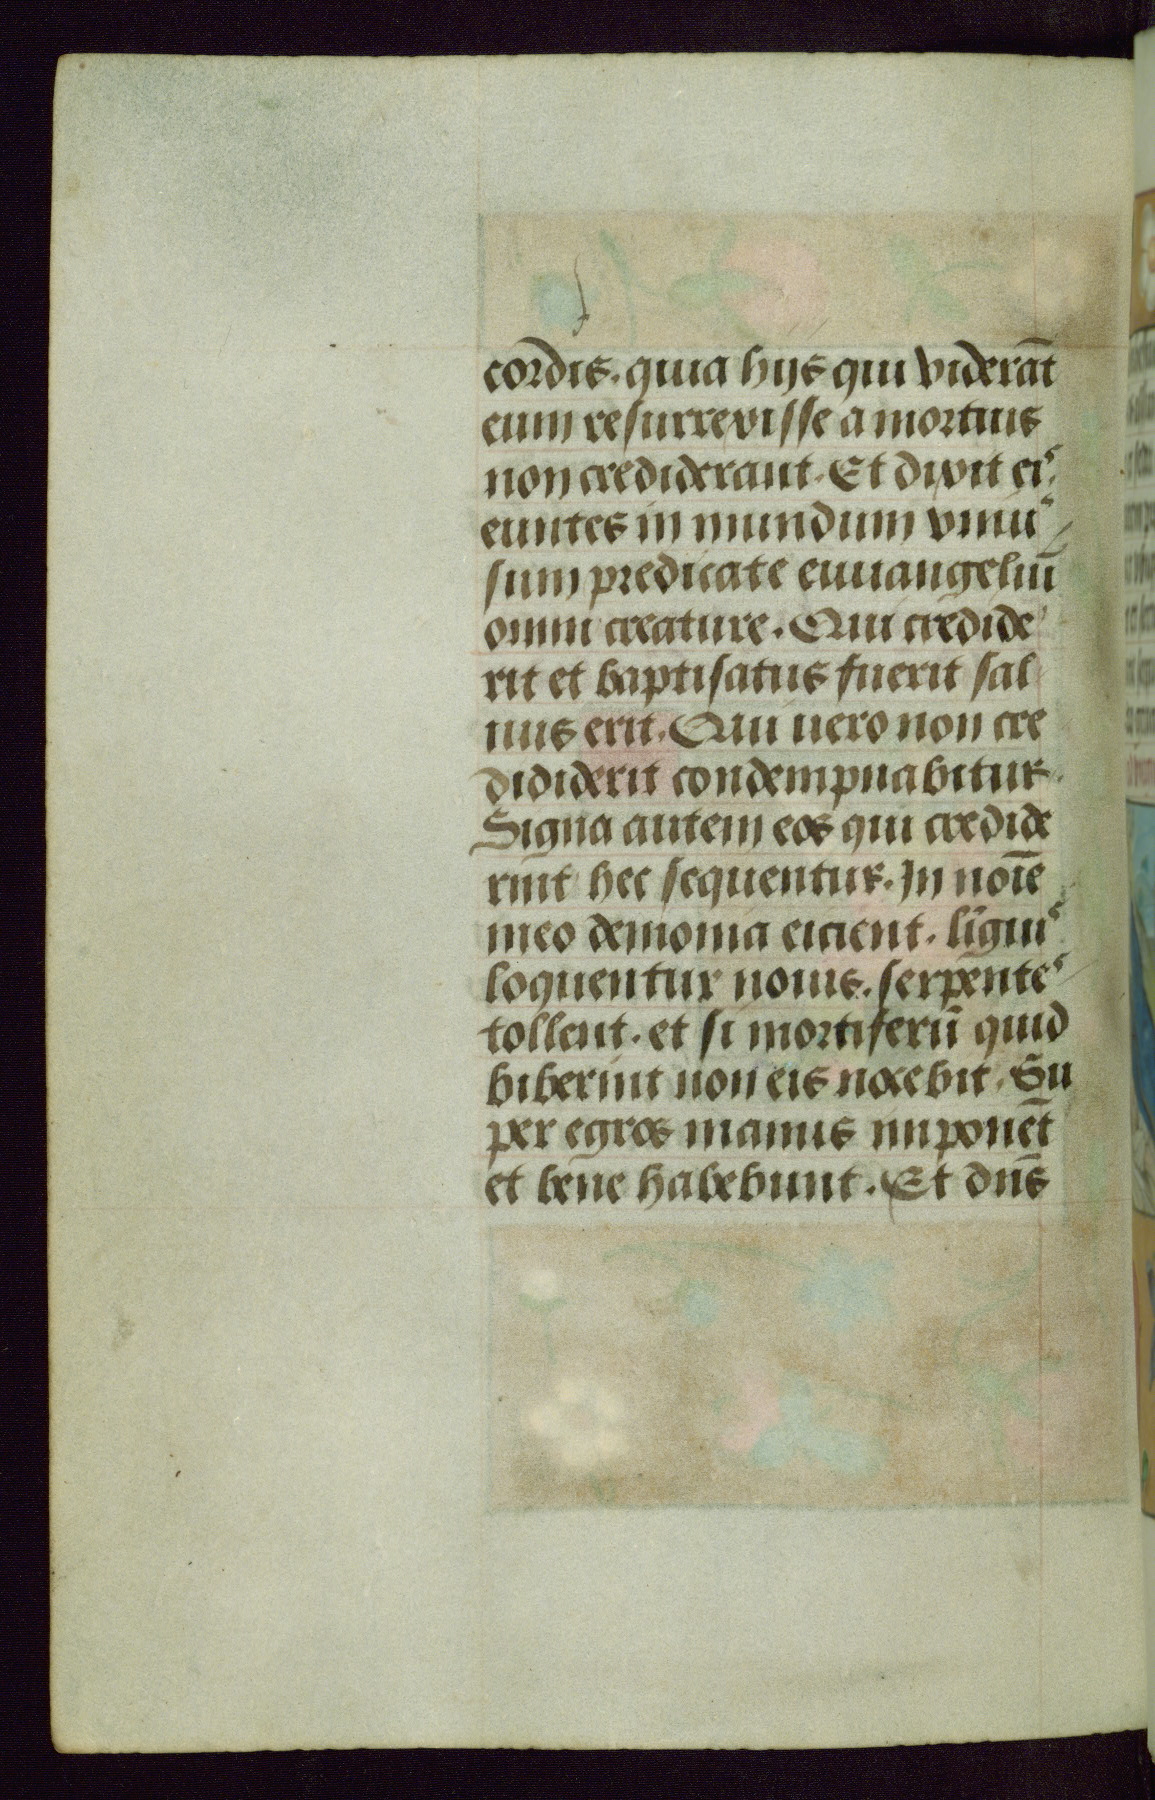 cordis. quia hijs qui viderāt
eum resurrexisse a mortuis
non crediderant. Et dixit eis.
euntes in mundum vniu
sum predicate euuangeliū
omni creature. Qui credide
rit et baptisatus fuerit sal
uus erit. Qui uero non cre
dididerit condempnabitur.
Signa autem eos qui credide
rint hec sequentur. In noīe
meo demonia eicient. līguis
loquentur nouis. serpentes
tollent. et si mortiferū quid
biberint non eis nocebit. Su
per egros manus imponēt
et bene habebunt. Et dn̄s